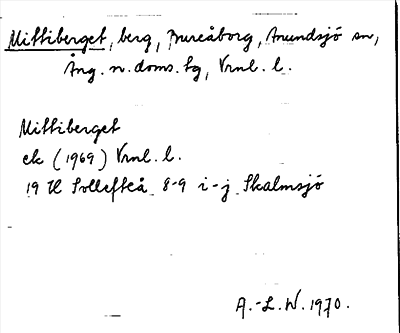 Mittiberget, berg, Bureåborg, Anundsjö sn,
Ång. n. doms. tg, Vrnl. l.
Mittiberget
ek (1969) Vrnl. l.
19 H Sollefteå 8-9 i-j Skalmsjö
A.-L.W. 1970.